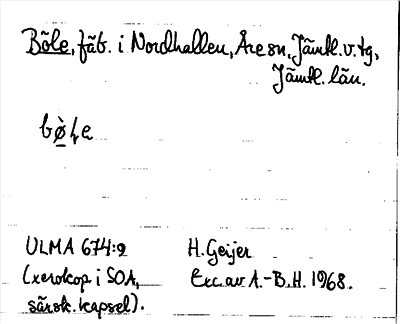 Böle, fäb. i Nordhallen, Åre sn, Jämtl. v. tg,
Jämtl. län.
ULMA 674:2 H. Geijer
(xerokop. i SOA, Exc. av A.-B. H. 1968.
särsk. kapsel).